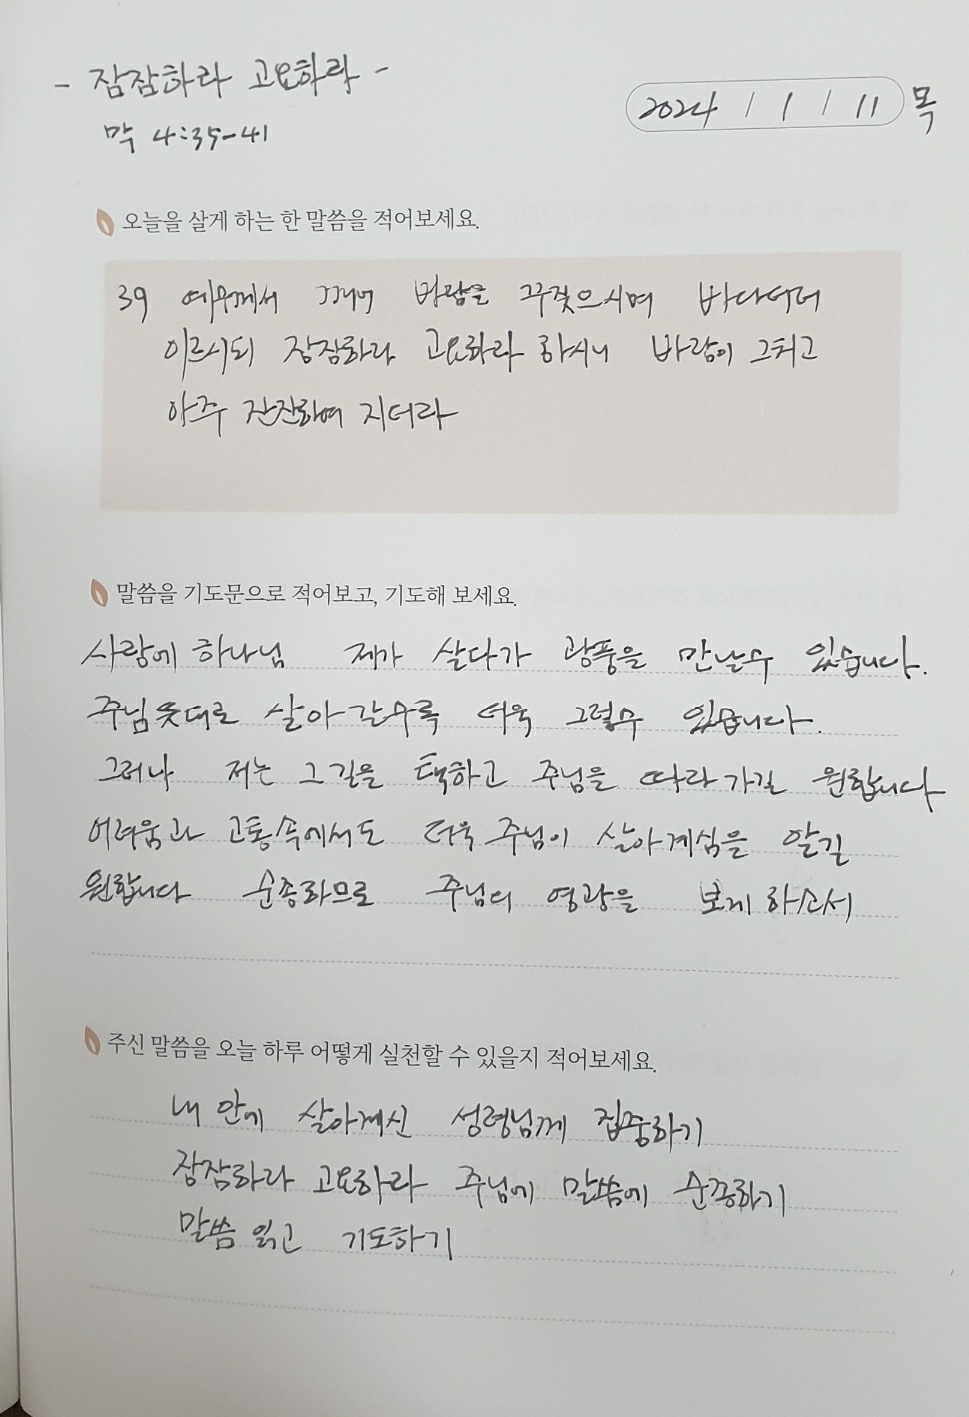 - 잠잠하라 고요하라 -
2024 / 1 / 11 목
막 4:35-41
오늘을 살게 하는 한 말씀을 적어보세요.
39 예수께서 깨어 바람을 꾸짖으시며 바다더러
이르시되 잠잠하라 고요하라 하시니 바람이 그치고
아주 잔잔하여 지더라
말씀을 기도문으로 적어보고, 기도해 보세요.
사랑에 하나님 제가 살다가 광풍을 만날수 있습니다.
주님 뜻대로 살아 갈수록 더욱 그럴수 있습니다.
그러나 저는 그 길을 택하고 주님을 따라 가길 원합니다
어려움과 고통속에서도 더욱 주님이 살아계심을 알길
원합니다 순종하므로 주님의 영광을 보게 하소서
주신 말씀을 오늘 하루 어떻게 실천할 수 있을지 적어보세요.
내 안에 살아계신 성령님께 집중하기
잠잠하라 고요하라 주님에 말씀에 순종하기
말씀 읽고 기도하기